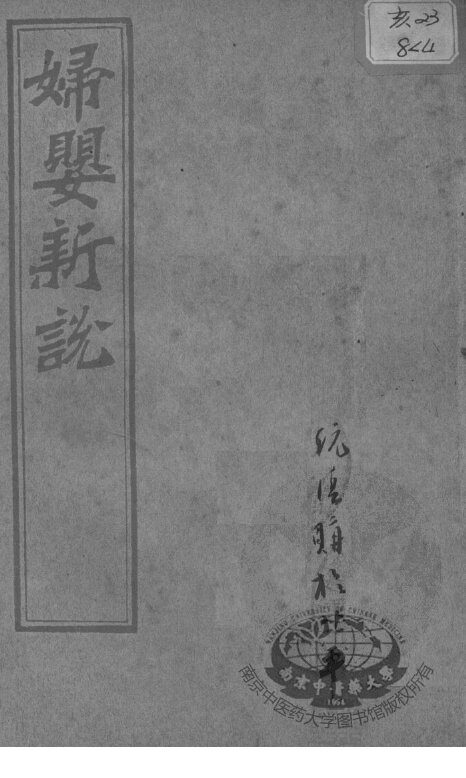 亥23
844
婦嬰新說
購於北平
NANJING UNIVERSITY OF CHINESE MEDICINE
南京中醫藥大學
1954
南京中医药大学图书馆版权所有